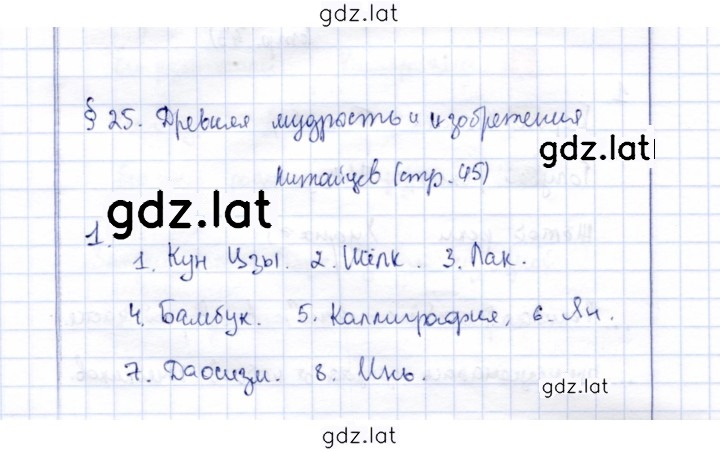 gdz.lat
§ 25. Древняя мудрость и изобретения
gdz.lat
китайцев (стр. 45)
gdz.lat
1.
1. Кун Цзы. 2. Шёлк. 3. Лак.
4. Бамбук. 5. Каллиграфия, 6. Ян.
7. Даосизм. 8. Инь.
gdz.lat
gdz.lat